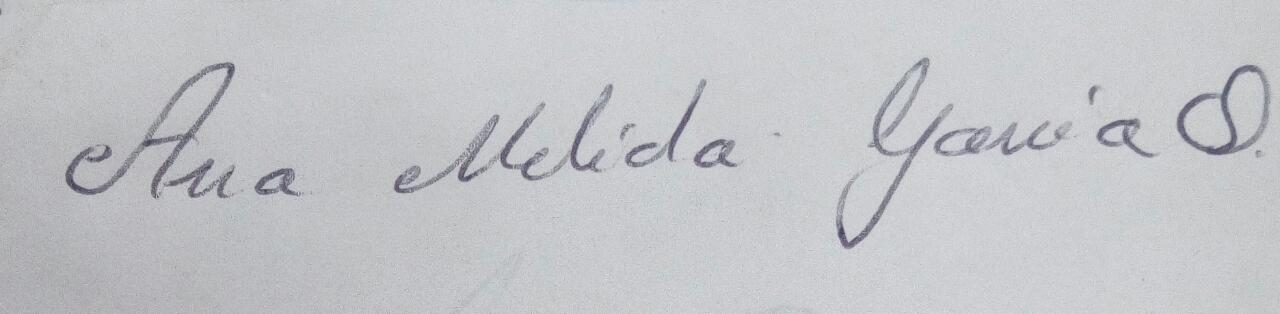 Ana Melida García O.